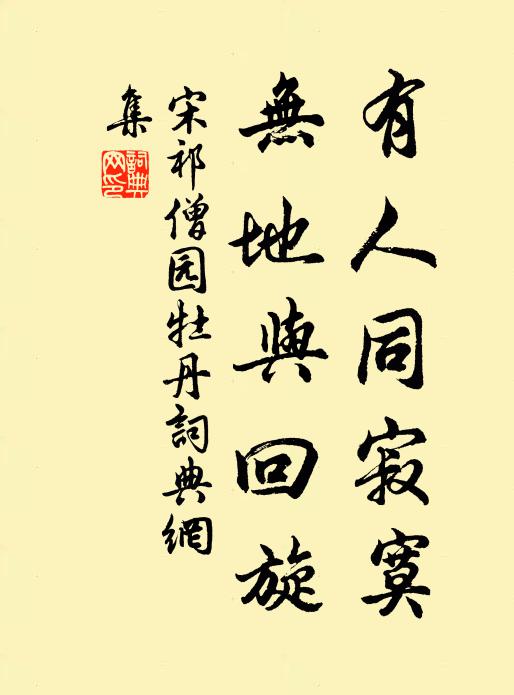 有人同寂寞
無地與回旋
宋祁僧园牡丹詞典網
集
詞典
网印